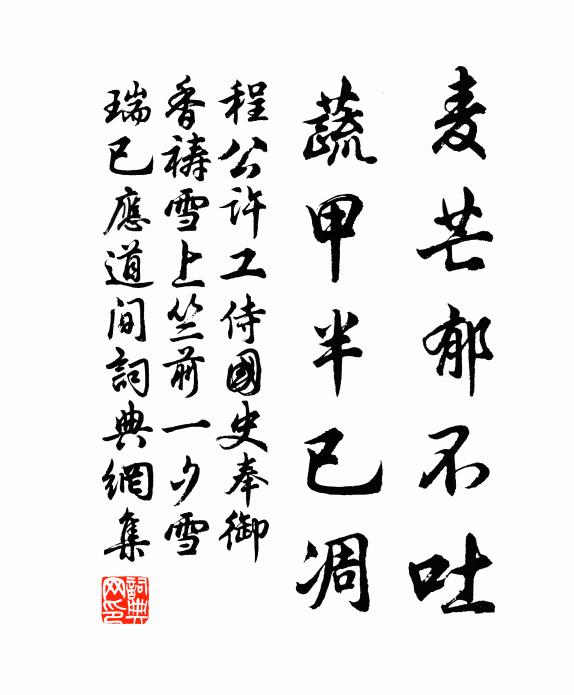 麦芒郁不吐
蔬甲半已凋
程公许工侍國史奉御
香祷雪上竺前一夕雪
瑞已應道间詞典網集
詞典网印